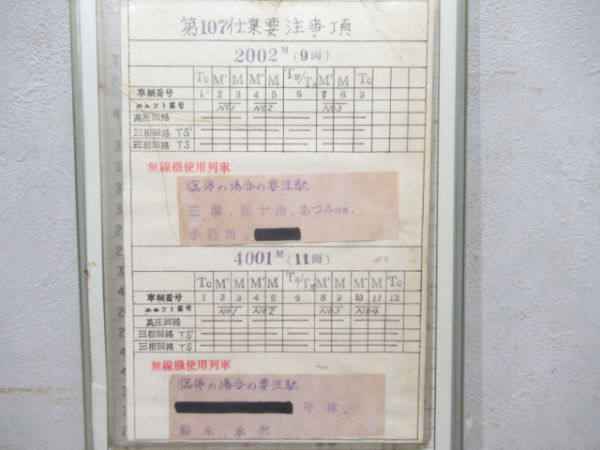 第107仕業要注事項
2002M(9両)
Tc M' M M' M Ts/Ts M' M Tc
車輌番号 1 2 3 4 5 6 7 8 9
ユニット番号 NO1 NO2 NO3
高圧回路
三相回路 TS'
三相回路 TS
無線機使用列車
臨停の場合の要注駅
三瀬、五十川、あつみ温泉、
小岩川、
4001M(11両)
Tc M' M M' M Ts/Ts M' M M' M Tc
車輌番号 1 2 3 4 5 6 8 9 10 11 12
ユニット番号 NO1 NO2 NO3 NO4
高圧回路
三相回路 TS'
三相回路 TS
無線機使用列車
臨停の場合の要注駅
平林、
勝木、水沢